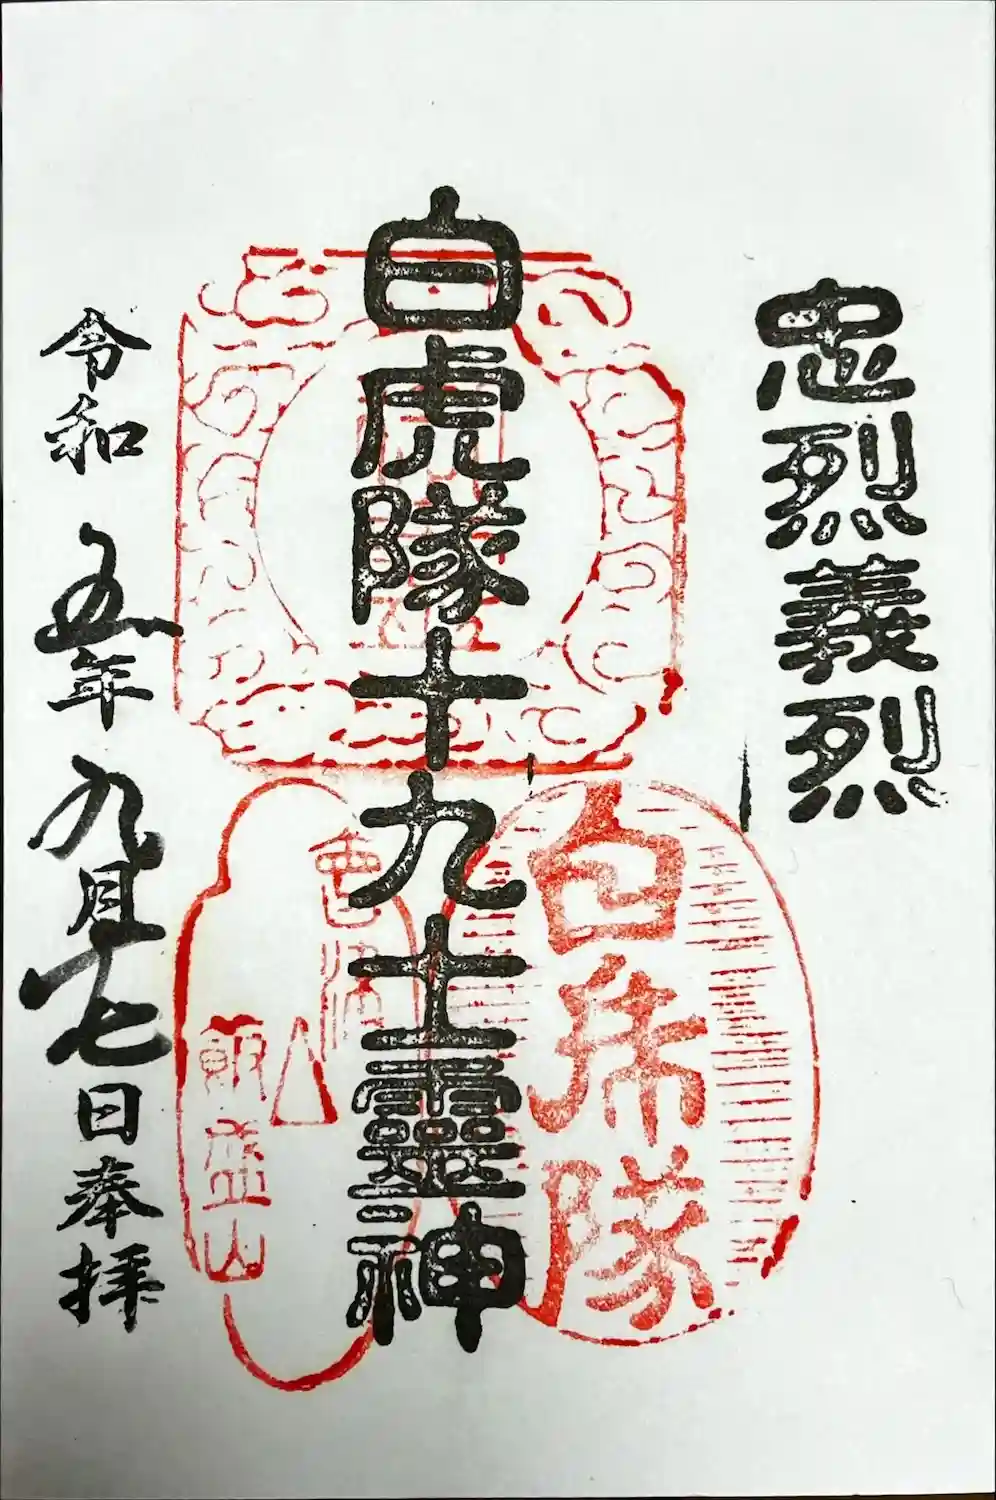 忠烈義烈
白虎隊十九士靈神
白虎隊
會津
飯盛山
令和五年九月七日奉拝